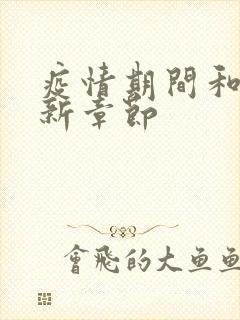 疫情期間和
新章節
會飛的大魚魚